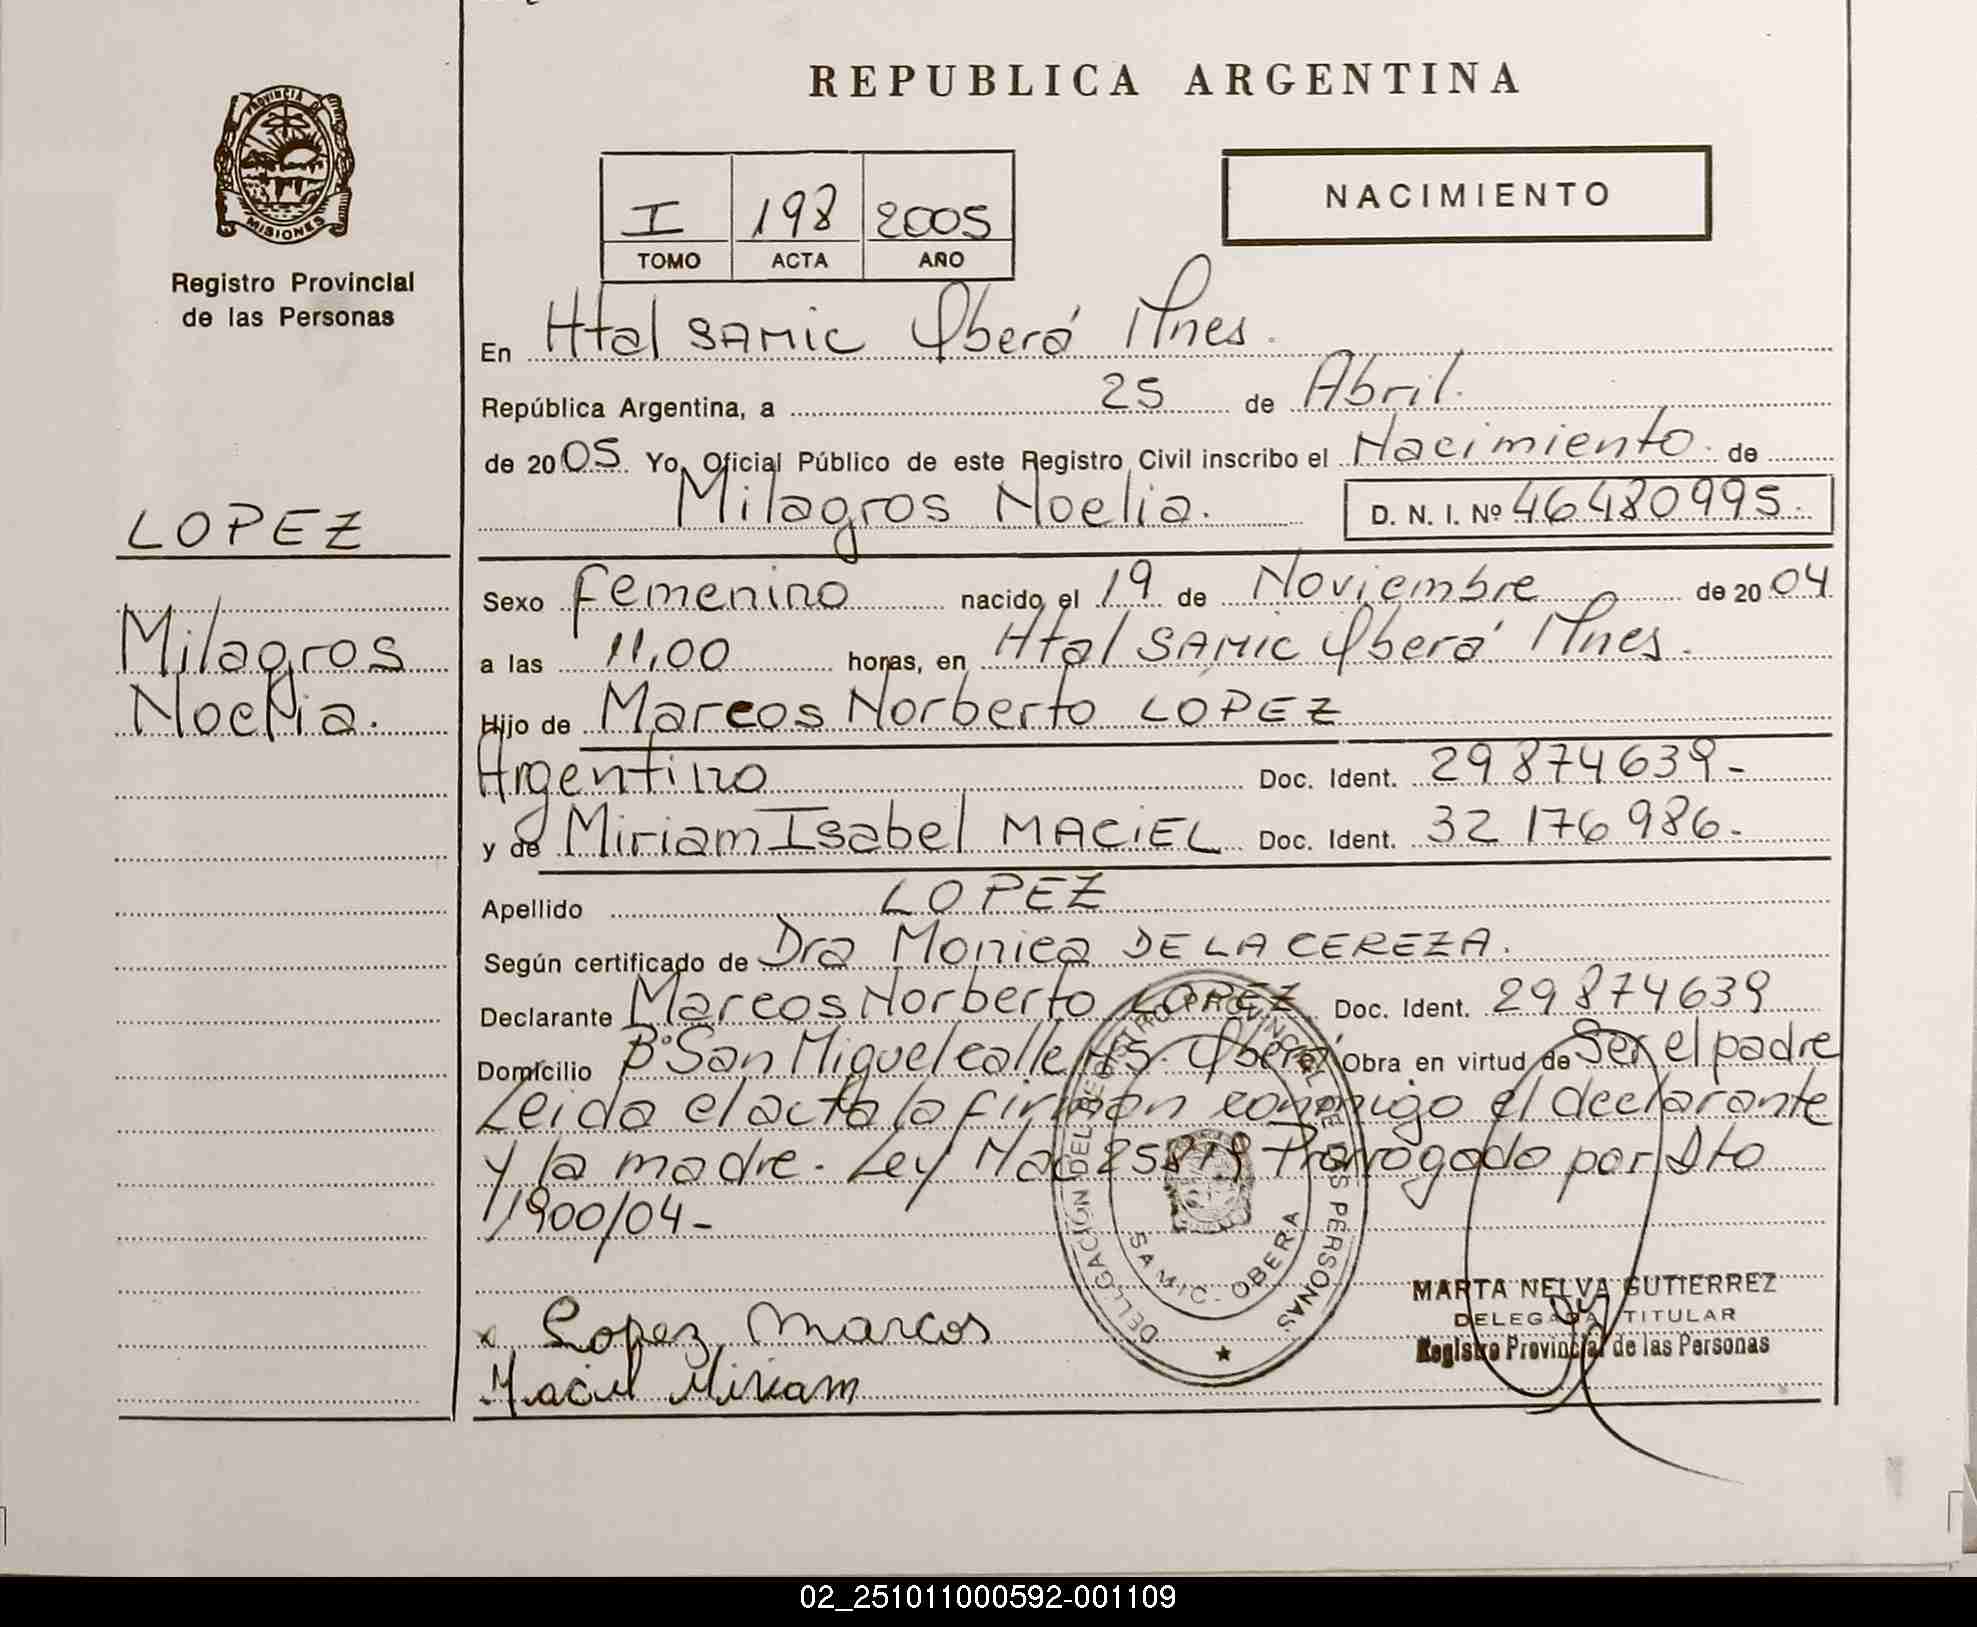 REPUBLICA ARGENTINA
PROVINCIA DE
MISIONES
Registro Provincial
de las Personas
I 198 2005
TOMO ACTA AÑO
NACIMIENTO
En Htal SAMIC Oberá Mnes.
República Argentina, a 25 de Abril.
de 2005. Yo, Oficial Público de este Registro Civil inscribo el Nacimiento. de
Milagros Noelia. D. N. I. Nº 46480995.
LOPEZ
Milagros
Noelia.
Sexo femenino nacido el 19 de Noviembre de 2004
a las 11,00 horas, en Htal SAMIC Oberá Mnes.
Hijo de Marcos Norberto LOPEZ
Argentino Doc. Ident. 29874639-
y de Miriam Isabel MACIEL Doc. Ident. 32176986-
Apellido LOPEZ
Según certificado de Dra Monica DE LA CEREZA.
Declarante Marcos Norberto LOPEZ. Doc. Ident. 29874639
Domicilio Bº San Miguel calle Nº5. Oberá Obra en virtud de Ser el padre
Leida el acta la firman conmigo el declarante
y la madre. Ley Nac 25819 Prorrogado por Dto
1900/04-
DELEGACIÓN DEL REGISTRO PROVINCIAL DE LAS PERSONAS
SAMIC - OBERA
x Lopez Marcos
Maciel Miriam
MARTA NELVA GUTIERREZ
DELEGADA TITULAR
Registro Provincial de las Personas
02_251011000592-001109